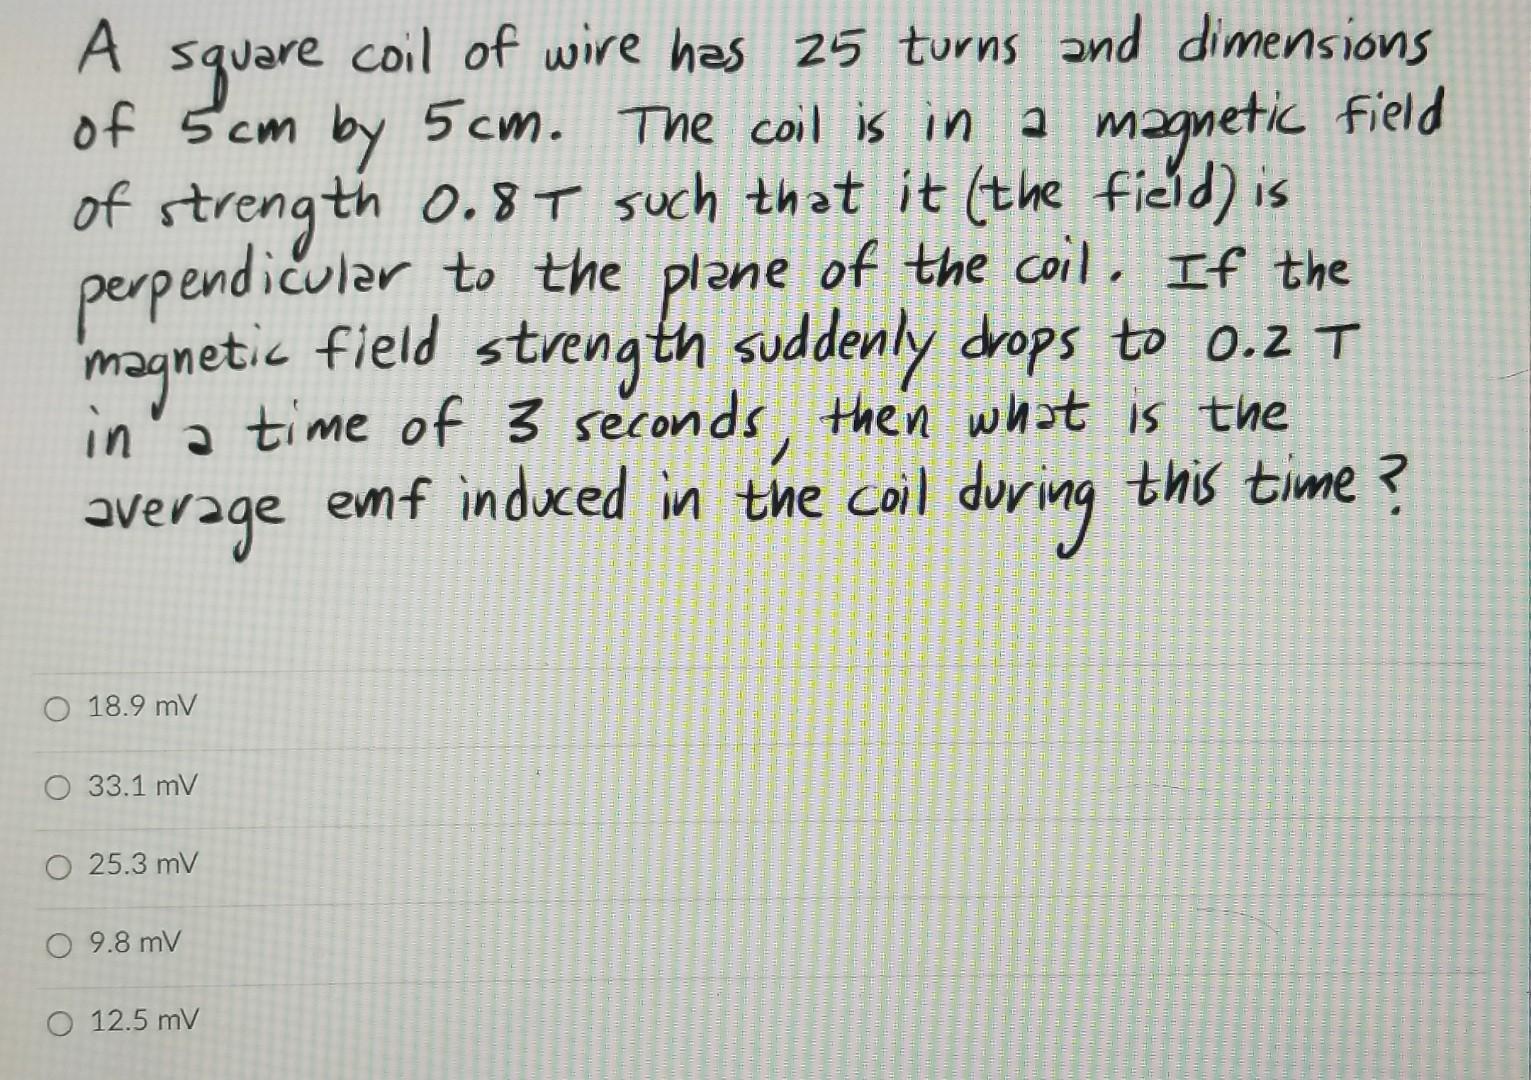 A square coil of wire has 25 turns and dimensions
of 5cm by 5cm. The coil is in a magnetic field
of strength 0.8T such that it (the field) is
perpendicular to the plane of the coil. If the
magnetic field strength suddenly drops to 0.2 T
in a time of 3 seconds, then what is the
average emf induced in the coil during this time?
18.9 mV
33.1 mV
25.3 mV
9.8 mV
12.5 mV